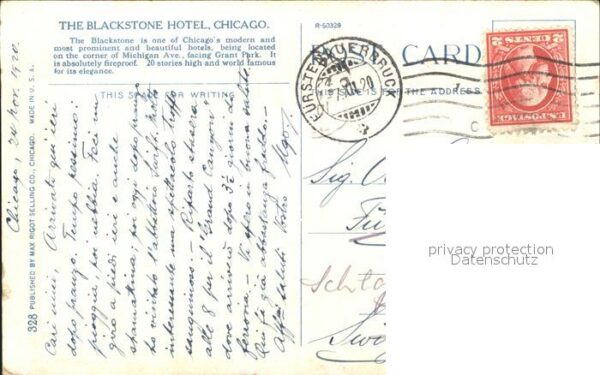 THE BLACKSTONE HOTEL, CHICAGO.
The Blackstone is one of Chicago's modern and
most prominent and beautiful hotels, being located
on the corner of Michigan Ave., facing Grant Park. It
is absolutely fireproof. 20 stories high and world famous
for its elegance.
R-50328
CARD
THIS SPACE FOR WRITING
THIS SIDE IS FOR THE ADDRESS
FÜRSTENAUERBRUCK
2 U.S. POSTAGE 2
328 PUBLISHED BY MAX RIGOT SELLING CO., CHICAGO. MADE IN U.S.A.
Chicago, 24 nov. 1920.
Cari miei, Arrivato qui ieri
dopo pranzo. Tempo pessimo:
pioggia, poi nebbia. Feci un
giro a piedi ieri e anche
stamattina; poi oggi dopo pranzo
ho visitato l'
interessante ma spettacolo troppo
sanguinoso. - Riparto stasera
alle 8 per il "Grand Canyon"
dove arriverò dopo 3½ giorni di
ferrovia. - Vi spero in buona salute.
Qui fa già abbastanza freddo.
Affmi saluti Vostro Ugo.
Sig.
Fü
Schla
Swi
privacy protection
Datenschutz